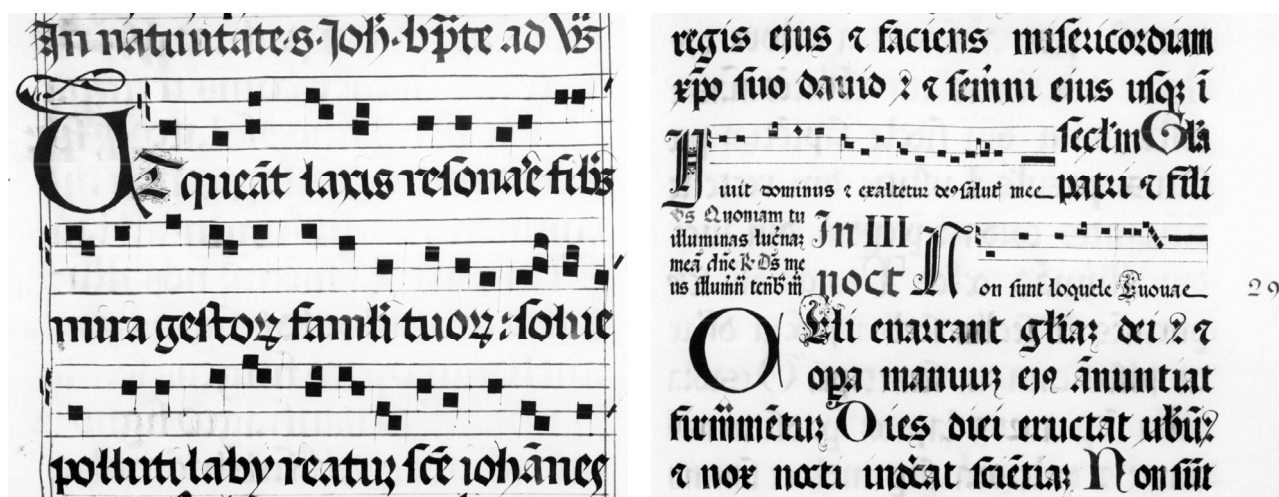 In natiuitate·s·Joħ·bp̃te ad Vs̃
UT queāt laxis resonaɾ̄e fibꝭs
mira gestoꝝ famĺi tuoꝝ : solue
polluti laby reatuʒ sc̄e iohānes
regis ejus ⁊ faciens misericordiam
xp̄o suo dauid ? ⁊ sem̄ni ejus usqʒ ī
secĺm Glĩa
Viuit dominus ⁊ exaltetur deꝰ salut̉ mee patri ⁊ fili
Vs Quoniam tu
illuminas lucˀnaʒ
meā dñe R̃ Ds̃ me
us illumi᷑ tenb᷑ m̃
In III
noct
Non sunt loquele Euouae
29
CEli enarrant gl̃iaʒ dei ? ⁊
opa manuuʒ ejꝰ ānuntiat
firm̃mētuʒ Dies diei eructat ubũʒ
⁊ nox nocti indc̃at sciētiaʒ Non sūt